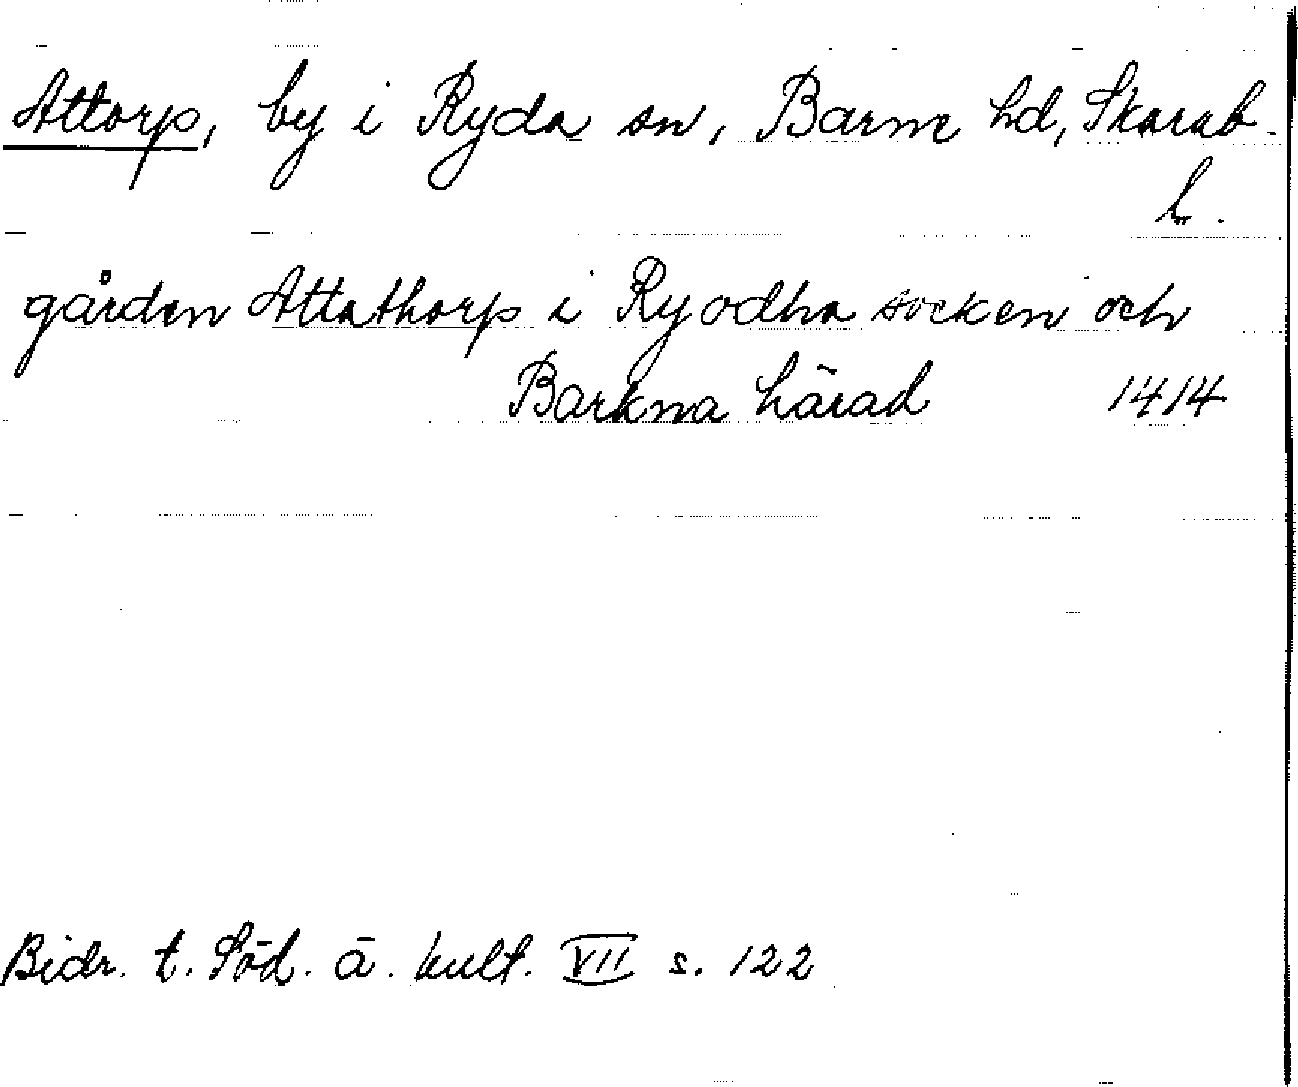 Attorp, by i Ryda sn, Barne hd, Skarab.
l.
gården Attathorp i Ryodha socken och
Barkna härad 1414
Bidr. t. Söd. ä. kult. VII s. 122